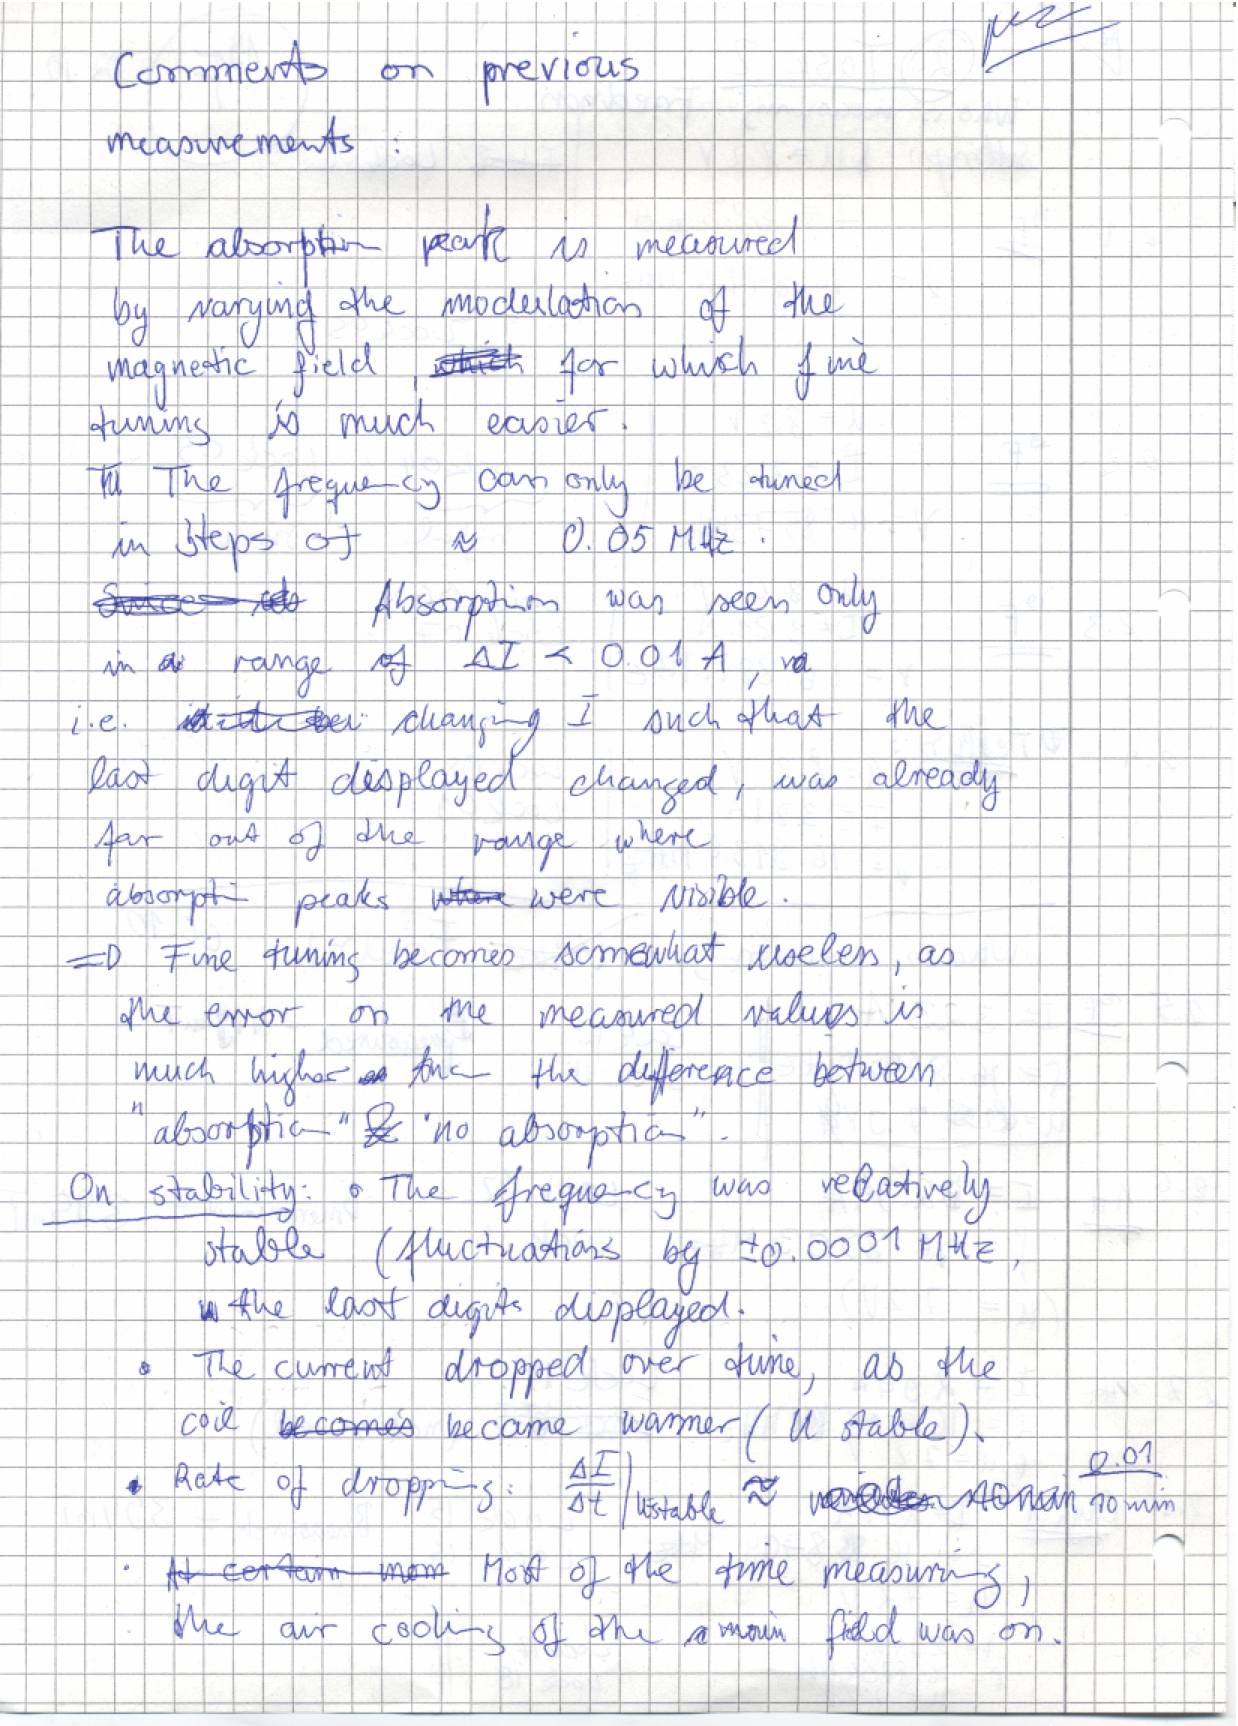 Comments on previous
measurements :
The absorption peak is measured
by varying the modulation of the
magnetic field, which for which fine
tuning is much easier.
The frequency can only be tuned
in steps of ≈ 0.05 MHz.
Absorption was seen only
in a range of ΔI < 0.01 A,
i.e. changing I such that the
last digit displayed changed, was already
far out of the range where
absorption peaks where were visible.
=> Fine tuning becomes somewhat useless, as
the error on the measured values is
much higher than the difference between
"absorption" & "no absorption".
On stability: • The frequency was relatively
stable (fluctuations by ±0.0001 MHz,
the last digits displayed.
• The current dropped over time, as the
coil becomes became warmer (U stable).
• Rate of dropping: ΔI/Δt |U stable ≈ 0.01/10 min
• At certain mom Most of the time measuring,
the air cooling of the main field was on.